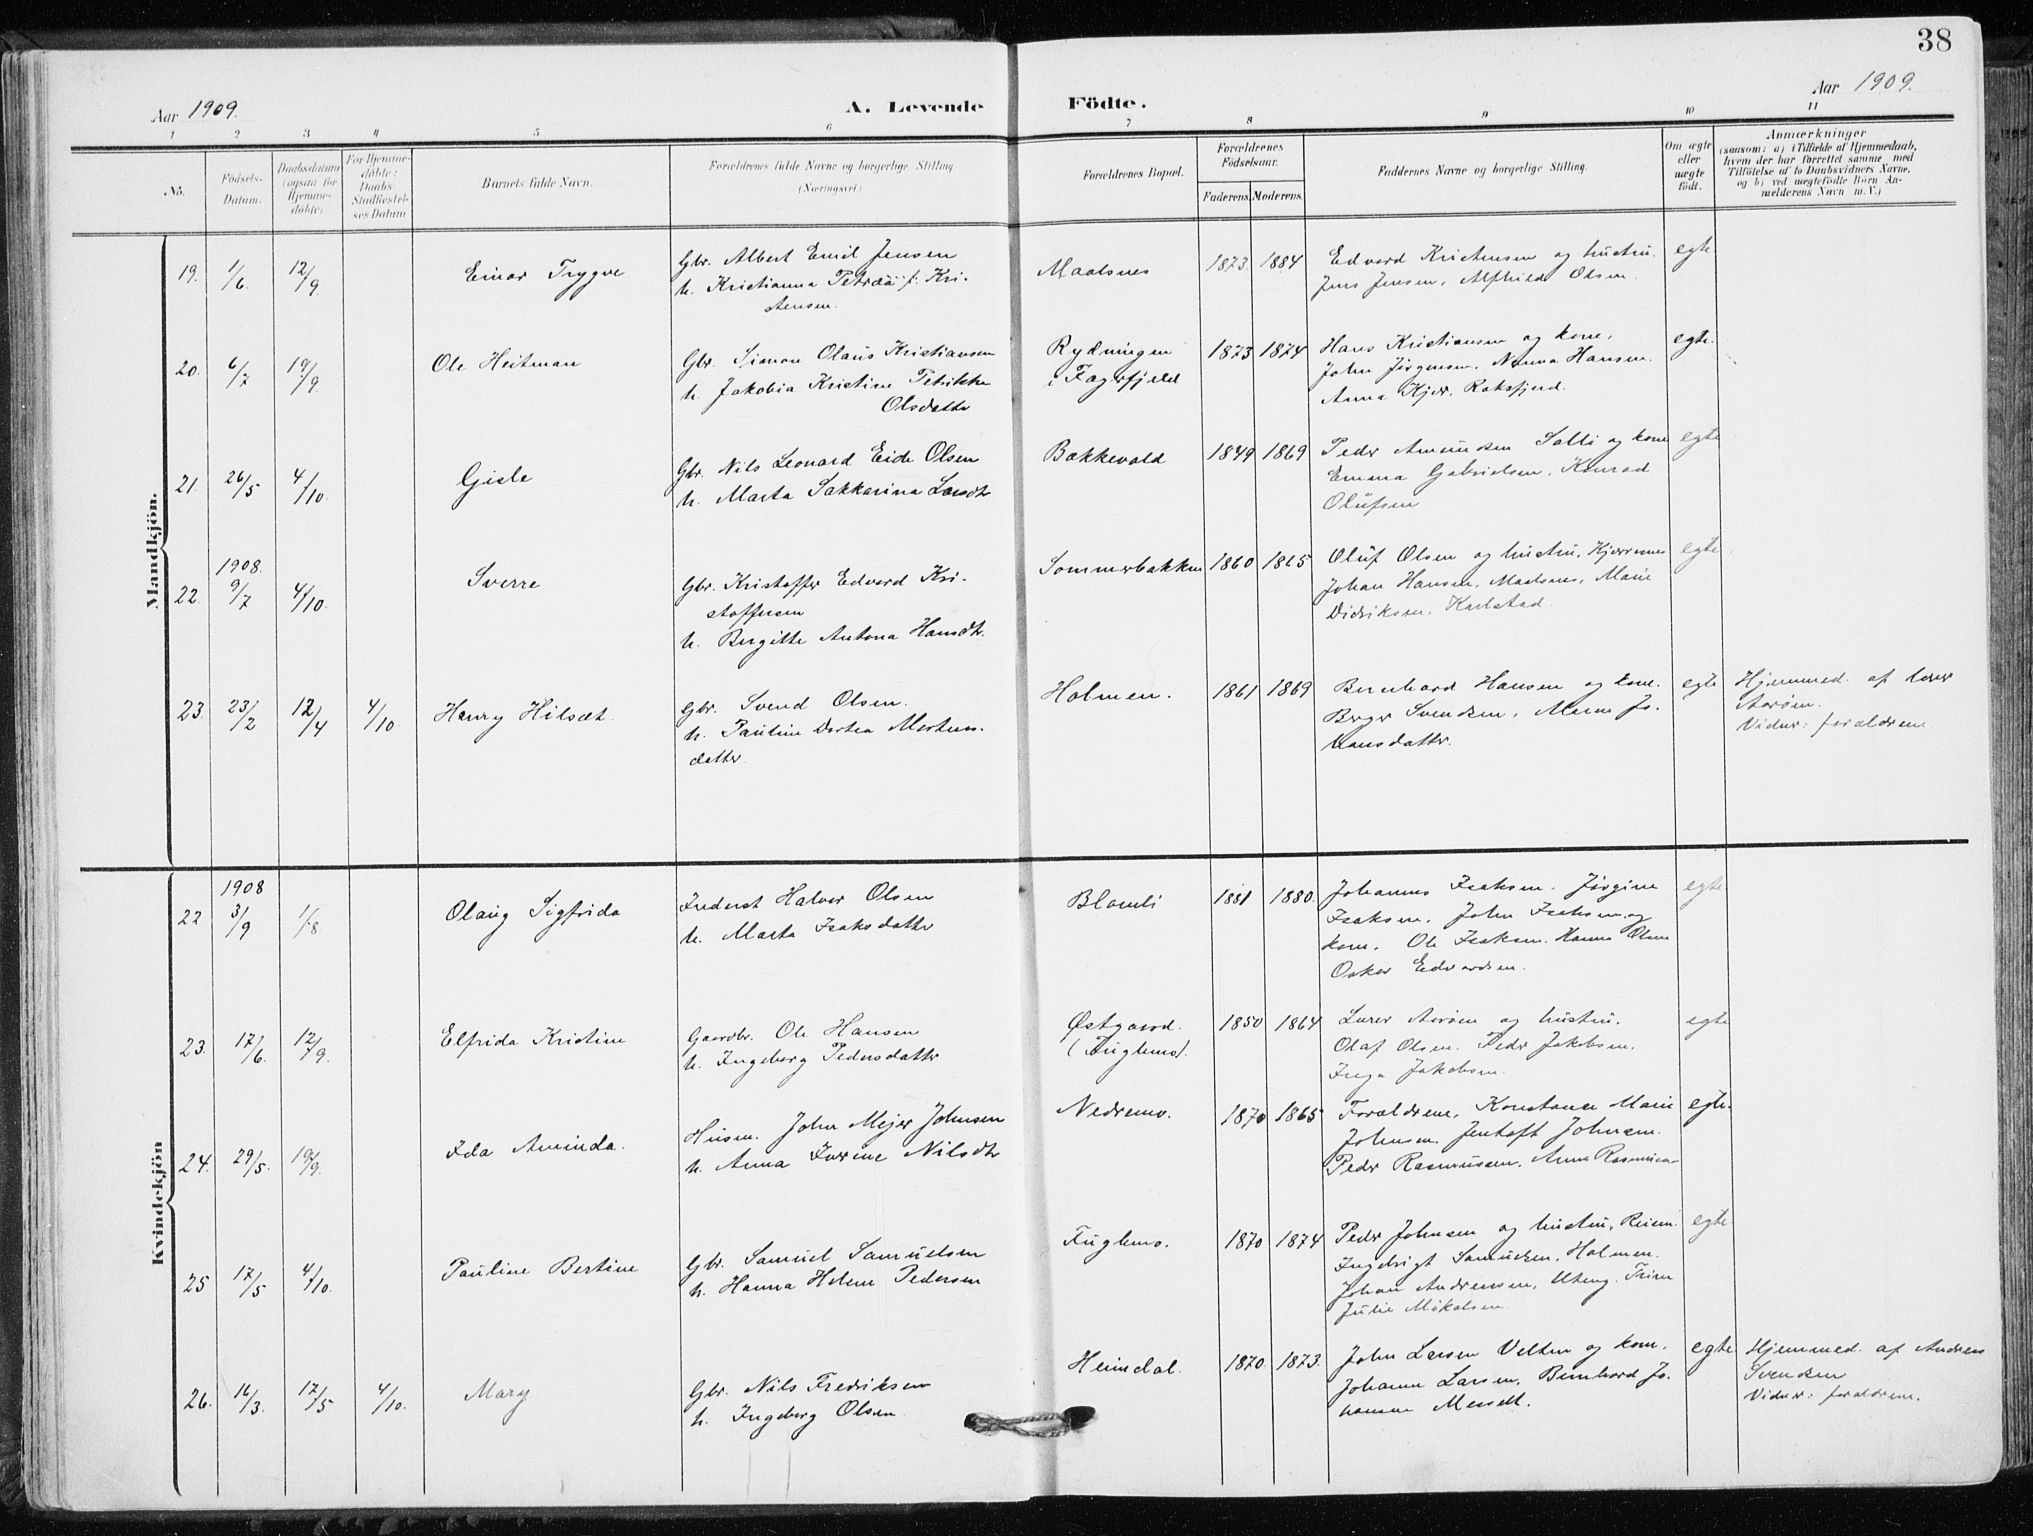 38
Aar 1909.
A. Levende
Födte.
Aar 1909.
1 2 3 4 5 6 7 8 9 10 11
No.
Födsels-Datum.
Daabsdatum (ogsaa for Hjemmedöbte)
For Hjemmedöbte: Daabs-Stadfæstelses Datum
Barnets fulde Navn.
Forældrenes fulde Navne og borgerlige Stilling (Næringsvei.)
Forældrenes Bopæl.
Forældrenes Födselsaar.
Faderens. Moderens.
Faddernes Navne og borgerlige Stilling.
Om ægte eller uægte födt.
Anmærkninger
(saasom: a) i Tilfælde af Hjemmedaab,
hvem der har forrettet samme med
Tilföielse af to Daabsvidners Navne,
og b) ved uægtefödte Börn An-
melderens Navn m. V.)
Mandkjön.
19. 1/6. 12/9. Einar Trygve
Gbr. Albert Emil Jensen
h. Kristianna Petrea f. Kri-
stensen.
Maalsnes 1873. 1884
Edvard Kristensen og hustru.
Jens Jensen, Alfhild Olsen.
egte
20. 6/7 19/9. Ole Heitman
Gbr. Simon Olaus Kristiansen
h. Jakobia Kristine Petrikke
Olsdattr
Rydningen
i Fagerfjeld
1873 1874
Hans Kristiansen og kone,
John Jörgensen, Nanna Hansen.
Anna Kjær, Roksfjord.
egte.
21. 26/5 4/10. Gisle
Gbr. Nils Leonard Eide Olsen
h. Marta Sakkarina Larsdtr
Bakkevold 1849 1869
Peder Amundsen Solli og kone
Emma Gabrielsen, Konrad
Olufsen
egte
22. 1908. 9/7 4/10. Sverre
Gbr. Kristoffer Edvard Kri-
stoffersen
h. Bergitte Antona Hansdtr.
Sommerbakken 1860 1865
Oluf Olsen og hustru, Kjærresnes
Johan Hansen, Maalsnes, Marie
Didriksen, Karlstad.
egte
23. 23/2 12/4 4/10 Henry Hilsæt.
Gbr. Svend Olsen.
h. Pauline Dortea Mortens-
datter.
Holmen. 1861 1869
Bernhard Hansen og kone.
Berger Svendsen, Marie Jo-
hansdattr.
egte
Hjemmed. af lærer
Aarøen.
Vidner: forældrene
Kvindekjön
22 1908 3/9 1/8 Olaug Sigfrida
Inderst Halvor Olsen
h. Marta Isaksdattr
Blomli 1881 1880.
Johannes Isaksen, Jörgine
Isaksen, John Isaksen og
kone, Ole Isaksen, Hanna Olsen
Oskar Edvardsen.
egte
23. 17/6. 12/9. Elfrida Kristine
Gaardbr. Ole Hansen
h. Ingeborg Pedersdattr
Østgaard.
(Fuglemo).
1850 1864
Lærer Aarøen og hustru.
Olaf Olsen, Peder Jakobsen.
Inga Jakobsen.
egte
24. 29/5. 19/9. Ida Aminda.
Husm. John Mejer Johnsen
h. Anna Furine Nilsdtr
Nedremo. 1870 1865
Forældrene, Konstance Marie
Johnsen, Jentoft Johnsen.
Peder Rasmussen, Anna Rasmussen
egte.
25 17/5 4/10. Pauline Bertine
Gbr. Samuel Samuelsen
h. Hanna Helene Pedersen
Fuglemo. 1870 1874
Peder Johnsen og hustru,
Ingebrigt Samuelsen, Holmen.
Johan Andreassen,
Julie Mikalsen.
egte
26. 16/3. 17/5 4/10. Mary
Gbr. Nils Fredriksen
h. Ingeborg Olsen.
Heimdal. 1870. 1873.
John Larsen Velten og kone,
Johanna Larsen, Bernhard Jo-
hannes
egte
Hjemmed. af Andreas
Svendsen
Vidner: forældrene.